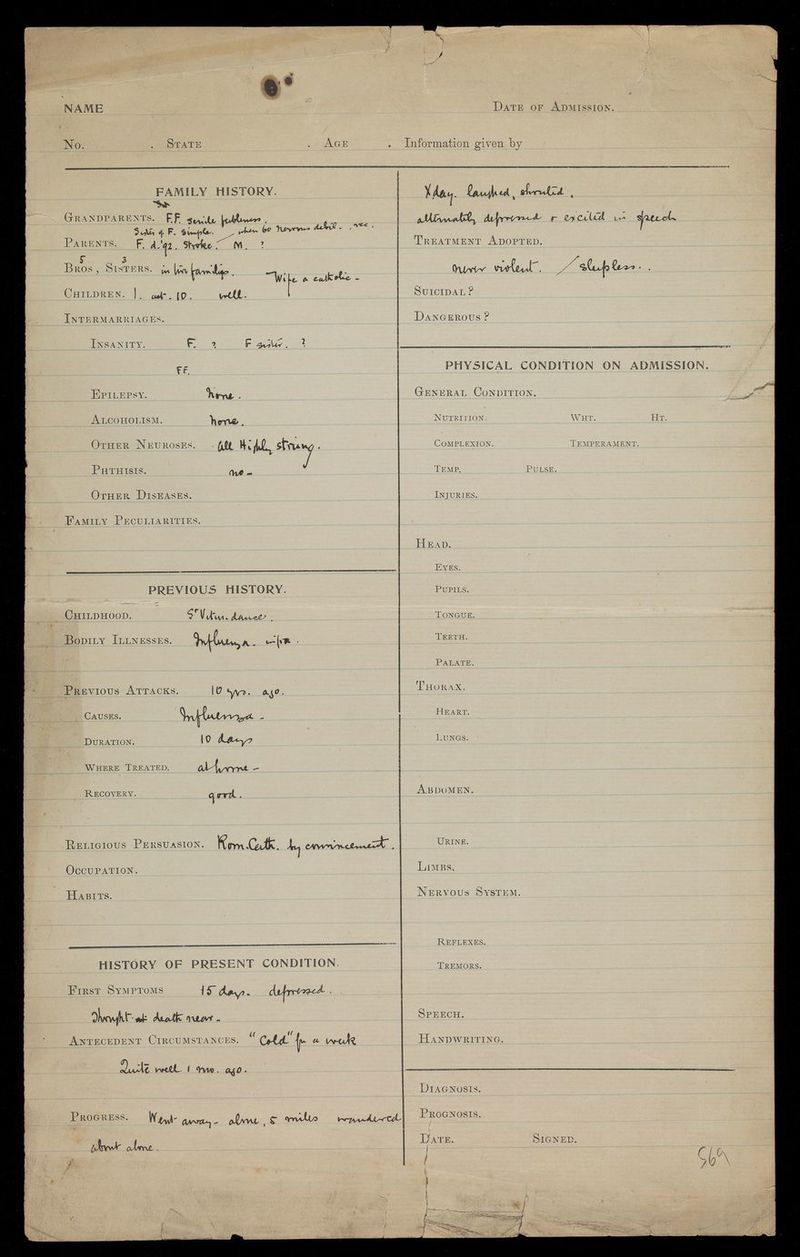 NAME
DATE OF ADMISSION.
No. . STATE . AGE . Information given by
FAMILY HISTORY.
GRANDPARENTS. F.F. Senile feebleness.
Sister of F. simple. when 60 nervous debil.
PARENTS. F. d. '92. Stroke. M. ?
5 3
BROS, SISTERS. in his family. Wife a catholic -
CHILDREN. 1. aet. 10. well.
INTERMARRIAGES.
INSANITY. F. ? F sister. ?
FF.
EPILEPSY. none.
ALCOHOLISM. none.
OTHER NEUROSES. all Highly strung.
PHTHISIS. no -
OTHER DISEASES.
FAMILY PECULIARITIES.
PREVIOUS HISTORY.
CHILDHOOD. St Vitus. dance.
BODILY ILLNESSES. Influenza.
PREVIOUS ATTACKS. 10 yrs. ago.
CAUSES. Influenza -
DURATION. 10 days
WHERE TREATED. at home -
RECOVERY. good.
RELIGIOUS PERSUASION. Rom. Cath. by convincement.
OCCUPATION.
HABITS.
HISTORY OF PRESENT CONDITION.
FIRST SYMPTOMS 15 days. depressed.
Thought death near -
ANTECEDENT CIRCUMSTANCES. "Cold" for a week
Quite well 1 mo. ago.
PROGRESS. Went away - alone, 5 miles wandered
about alone.
Xday. laughed, shouted,
alternately depressed & excited in speech
TREATMENT ADOPTED.
never violent. / sleepless.
SUICIDAL?
DANGEROUS?
PHYSICAL CONDITION ON ADMISSION.
GENERAL CONDITION.
NUTRITION WHT. HT.
COMPLEXION. TEMPERAMENT.
TEMP. PULSE.
INJURIES.
HEAD.
EYES.
PUPILS.
TONGUE.
TEETH.
PALATE.
THORAX.
HEART.
LUNGS.
ABDOMEN.
URINE.
LIMBS.
NERVOUS SYSTEM.
REFLEXES.
TREMORS.
SPEECH.
HANDWRITING.
DIAGNOSIS.
PROGNOSIS.
DATE. SIGNED.
569